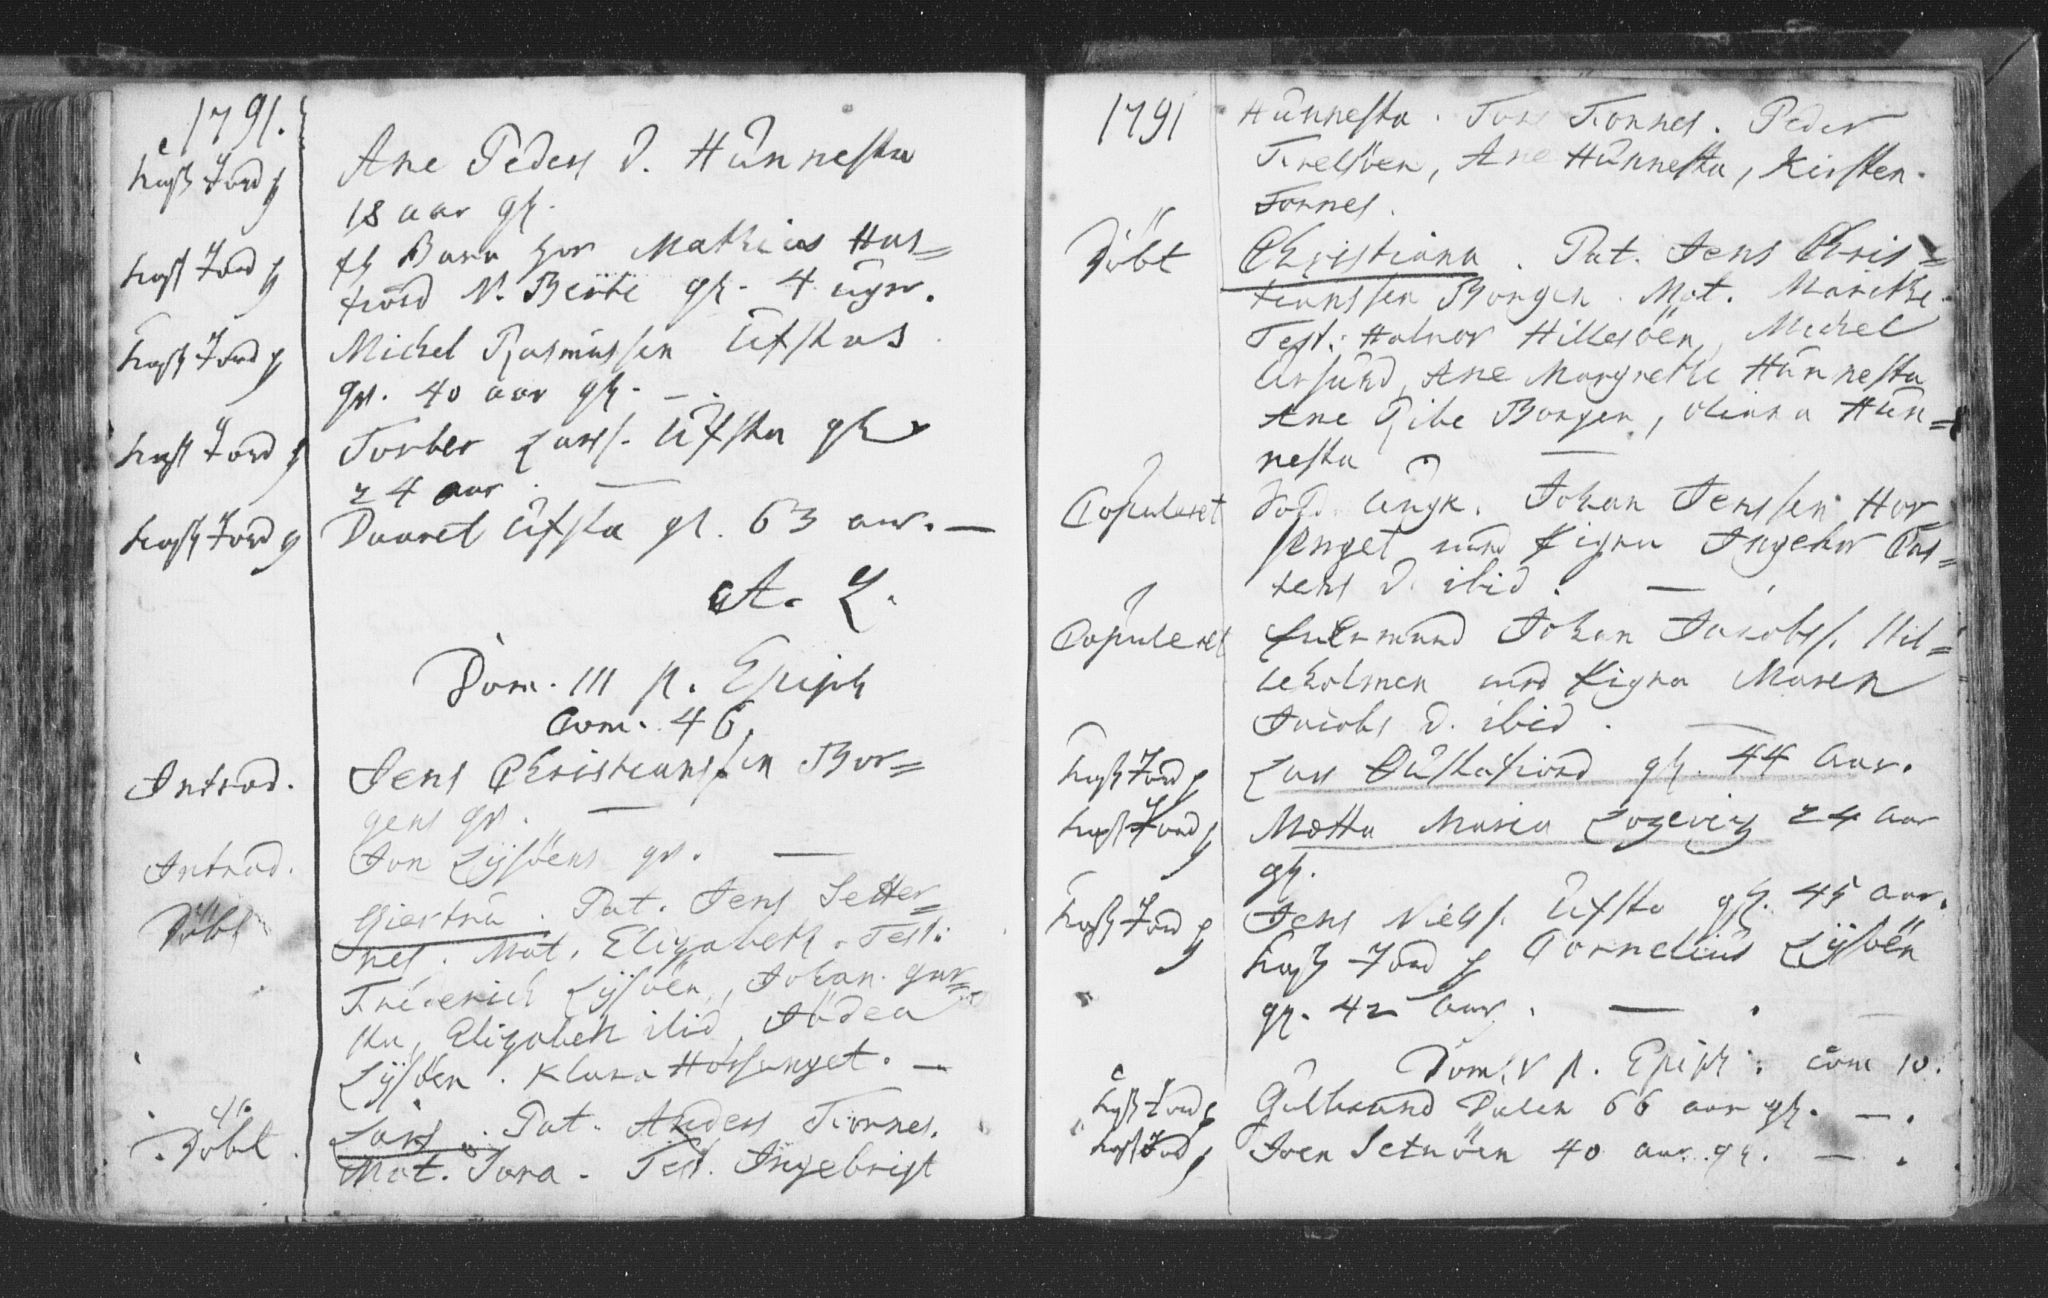 1791.
kast Jord p Ane Peders d. Hunnesta
18 aar gl.
kast Jord p et Barn hos Mathias Hus=
fiord N. Birte gl. 4 uger.
kast Jord p Michel Rasmussen Ufstas
qv. 40 aar gl. —
kast Jord p Torber Larss. Ufsta gl
24 aar. —
kast Jord p Daaret Ufsta gl. 63 aar. —
A. L.
Dom. III p. Epiph
Com. 46.
Introd. Jens Christianssen Bor=
gens qv. —
Introd. Jon Lysöens qv. —
Döbt Giertru. Pat. Jens Setter=
nes. Mat. Elizabeth. Test:
Friderich Lysöen, Johan
Elizabeth ibid,
Lysöen. Klara Horsenget. —
Döbt Lars. Pat. Anders Tornes.
Mat. Tora. Test. Ingebrigt
1791 Hunnesta. Tornes. Peder
Trelsöen, Ane Hunnesta, Kirsten
Tornes.
Döbt Christiana. Pat. Jens Chris=
tianssen Borgen. Mat. Marithe.
Test: Halvor Hillesöen, Michel
Ursund, Ane Margrethe Hunnesta
Ane Ribe Borgen, Olina Hun=
nesta —
Copuleret Sold. ungk. Johan Jenssen Hor=
senget med Pigen Ingebor Pas=
tens d. ibid. —
Copuleret Enkemand Johan Jacobs. Hil=
leholmen med Pigen Maren
Jacobs d. ibid. —
kast Jord p Lars Dustafiord gl. 44 aar.
kast Jord p Motta Maria Lozeviz 24 aar
gl.
kast Jord p Jens Niels. Ufsta gl. 45 aar.
kast Jord p Cornelius Lysöen
gl. 42 aar. —
Dom. V p. Epiph: Com 10.
kast Jord p Gulbrand Dalen 66 aar gl. —
kast Jord p Joen Setnöen 40 aar gl. —